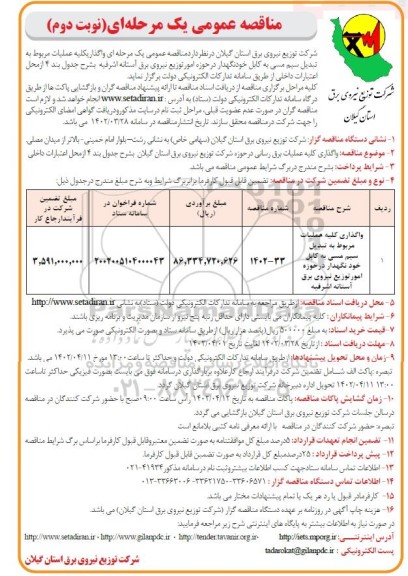 مناقصه عمومی یک مرحله‌ای(نوبت دوم)
شرکت توزیع نیروی برق
استان گیلان
شرکت توزیع نیروی برق استان گیلان درنظرداردمناقصه عمومی یک مرحله ای واگذاریکلیه عملیات مربوط به
تبدیل سیم مسی به کابل خودنگهدار درحوزه امورتوزیع نیروی برق آستانه اشرفیه بشرح جدول بند ۴ ازمحل
اعتبارات داخلی از طریق سامانه تدارکات الکترونیکی دولت برگزار نماید.
کلیه مراحل برگزاری مناقصه از دریافت اسناد مناقصه تا ارائه پیشنهاد مناقصه گران و بازگشایی پاکت ها از طریق
درگاه سامانه تدارکات الکترونیکی دولت (ستاد) به آدرس : www.setadiran.ir انجام خواهد شد و لازم است
مناقصه گران در صورت عدم عضویت قبلی، مراحل ثبت نام در سایت مذکورودریافت گواهی امضای الکترونیکی
را جهت شرکت درمناقصه محقق سازند. تاریخ انتشارمناقصه در سامانه ۱۴۰۲/۰۳/۲۸ می باشد.
۱- نشانی دستگاه مناقصه گزار: شرکت توزیع نیروی برق استان گیلان (سهامی خاص) به نشانی رشت-بلوار امام خمینی- بالاتر از میدان مصلی.
۲- موضوع مناقصه: واگذاری کلیه عملیات برق رسانی درحوزه شرکت توزیع نیروی برق استان گیلان بشرح جدول بند ۴ ازمحل اعتبارات داخلی
۳- شرایط پرداخت: بشرح مندرج دربرگ شرایط عمومی مناقصه می باشد.
۴- نوع و مبلغ تضمین شرکت درمناقصه: تضمین قابل قبول کارفرما برابر برگ شرایط وبه شرح مبلغ مندرج درجدول ذیل:
ردیف | شرح مناقصه | شماره مناقصه | مبلغ برآوردی (ریال) | شماره فراخوان در سامانه ستاد | مبلغ تضمین شرکت در فرآیندارجاع کار
۱ | واگذاری کلیه عملیات مربوط به تبدیل سیم مسی به کابل خود نگهدار درحوزه امورتوزیع نیروی برق آستانه اشرفیه | ۱۴۰۲-۳۳ | ۸۶,۳۳۴,۷۲۰,۶۲۶ | ۲۰۰۲۰۰۵۱۰۴۰۰۰۰۴۳ | ۳,۵۹۱,۰۰۰,۰۰۰
۵- محل دریافت اسناد مناقصه: از طریق مراجعه به سامانه تدارکات الکترونیکی دولت (ستاد) به نشانی http://www.setadiran.ir
۶- شرایط پیمانکاران: کلیه پیمانکاران می بایستی دارای حداقل رتبه پنج نیرو ازسازمان مدیریت و برنامه ریزی باشند.
۷- قیمت خرید اسناد: به مبلغ ۵۰۰۰۰۰ ریال(پانصد هزار ریال) ازطریق سامانه ستاد و بصورت الکترونیکی صورت می پذیرد.
۸- مهلت دریافت اسناد: از تاریخ ۱۴۰۲/۰۳/۲۸ لغایت تاریخ ۱۴۰۲/۰۴/۰۱
۹- زمان و محل تحویل پیشنهادها: ازطریق سامانه تدارکات الکترونیکی دولت و حداکثر تا ساعت ۱۳:۰۰ مورخ ۱۴۰۲/۰۴/۱۱ می باشد.
تبصره: پاکت الف شامل تضمین شرکت در فرآیند ارجاع کار علاوه بر بارگذاری درسامانه فوق می بایست بصورت فیزیکی حداکثر تاساعت
۱۳:۰۰ ۱۴۰۲/۰۴/۱۱ تحویل اداره دبیرخانه شرکت توزیع نیروی برق استان گیلان گردد.
۱۰- زمان گشایش پاکات: پاکات مناقصه به تاریخ ۱۴۰۲/۰۴/۱۲ راس ساعت ۰۹:۰۰ صبح با حضور کلیه شرکت کنندگان در مناقصه
درسالن جلسات شرکت توزیع نیروی برق استان گیلان بازگشایی می گردد.
تبصره: حضور شرکت کنندگان در مناقصه با ارائه معرفی نامه کتبی بلامانع است
۱۱- تضمین انجام تعهدات قرارداد: ۵درصد مبلغ کل موافقتنامه به صورت تضمین معتبروقابل قبول کارفرما براساس برگ شرایط مناقصه
۱۲- پیش پرداخت قرارداد: ۲۵درصدمبلغ کل قرارداد به صورت تضمین قابل قبول کارفرما.
۱۳- اطلاعات تماس سامانه ستادجهت کسب اطلاعات بیشتروثبت نام درسامانه مذکور۴۱۹۳۴-۰۲۱
۱۴- اطلاعات تماس دستگاه مناقصه گزار: ۳۳۶۰۶۵۷۱-۳۳۶۲۱۷۵۰-۰۱۳-۳۳۶۶۳۰۰۶
۱۵- کارفرمادر قبول یا رد هر یک یا تمام پیشنهادات مختار می باشد.
۱۶- هزینه چاپ آگهی در روزنامه بر عهده دستگاه مناقصه گزار (شرکت توزیع نیروی برق استان گیلان) می باشد.
در صورت نیاز به اطلاعات بیشتر به پایگاه های اینترنتی شرح زیر مراجعه فرمایید:
آدرس اینترنتــی: http://iets.mporg.ir - http://tender.tavanir.org.ir - http://www.gilanpdc.ir - http://www.setadiran.ir
پست الکترونیکی : tadarokat@gilanpdc.ir
شرکت توزیع نیروی برق استان گیلان